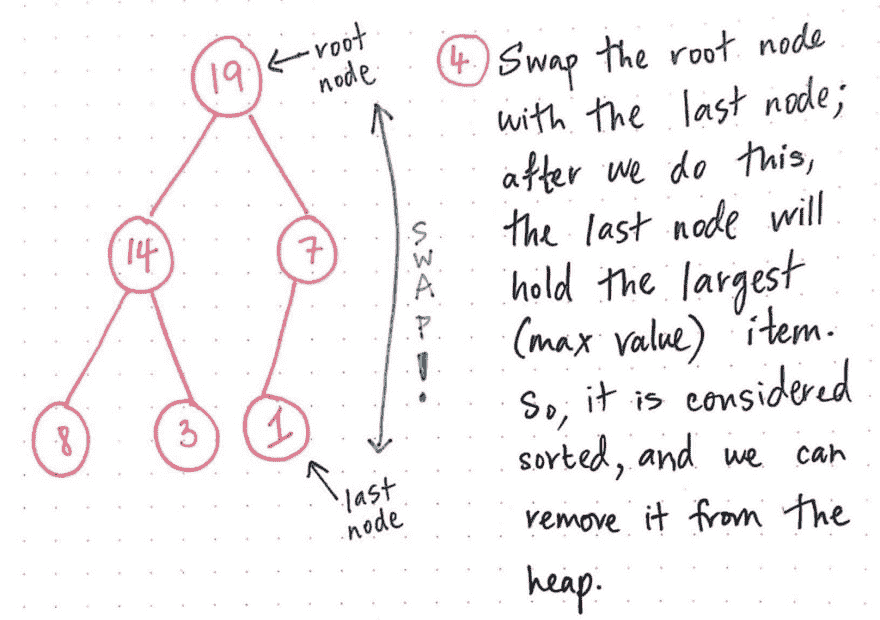 19
root
node
14
7
8
3
1
SWAP!
last
node
4
Swap the root node
with the last node;
after we do this,
the last node will
hold the largest
(max value) item.
So, it is considered
sorted, and we can
remove it from the
heap.